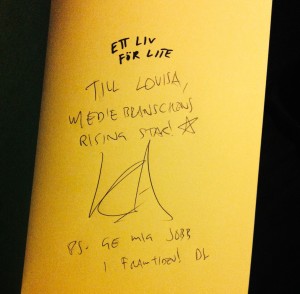 ETT LIV
FÖR LITE
TILL LOUISA,
MEDIEBRANSCHENS
RISING STAR!
PS. GE MIG JOBB
I FRAMTIDEN!